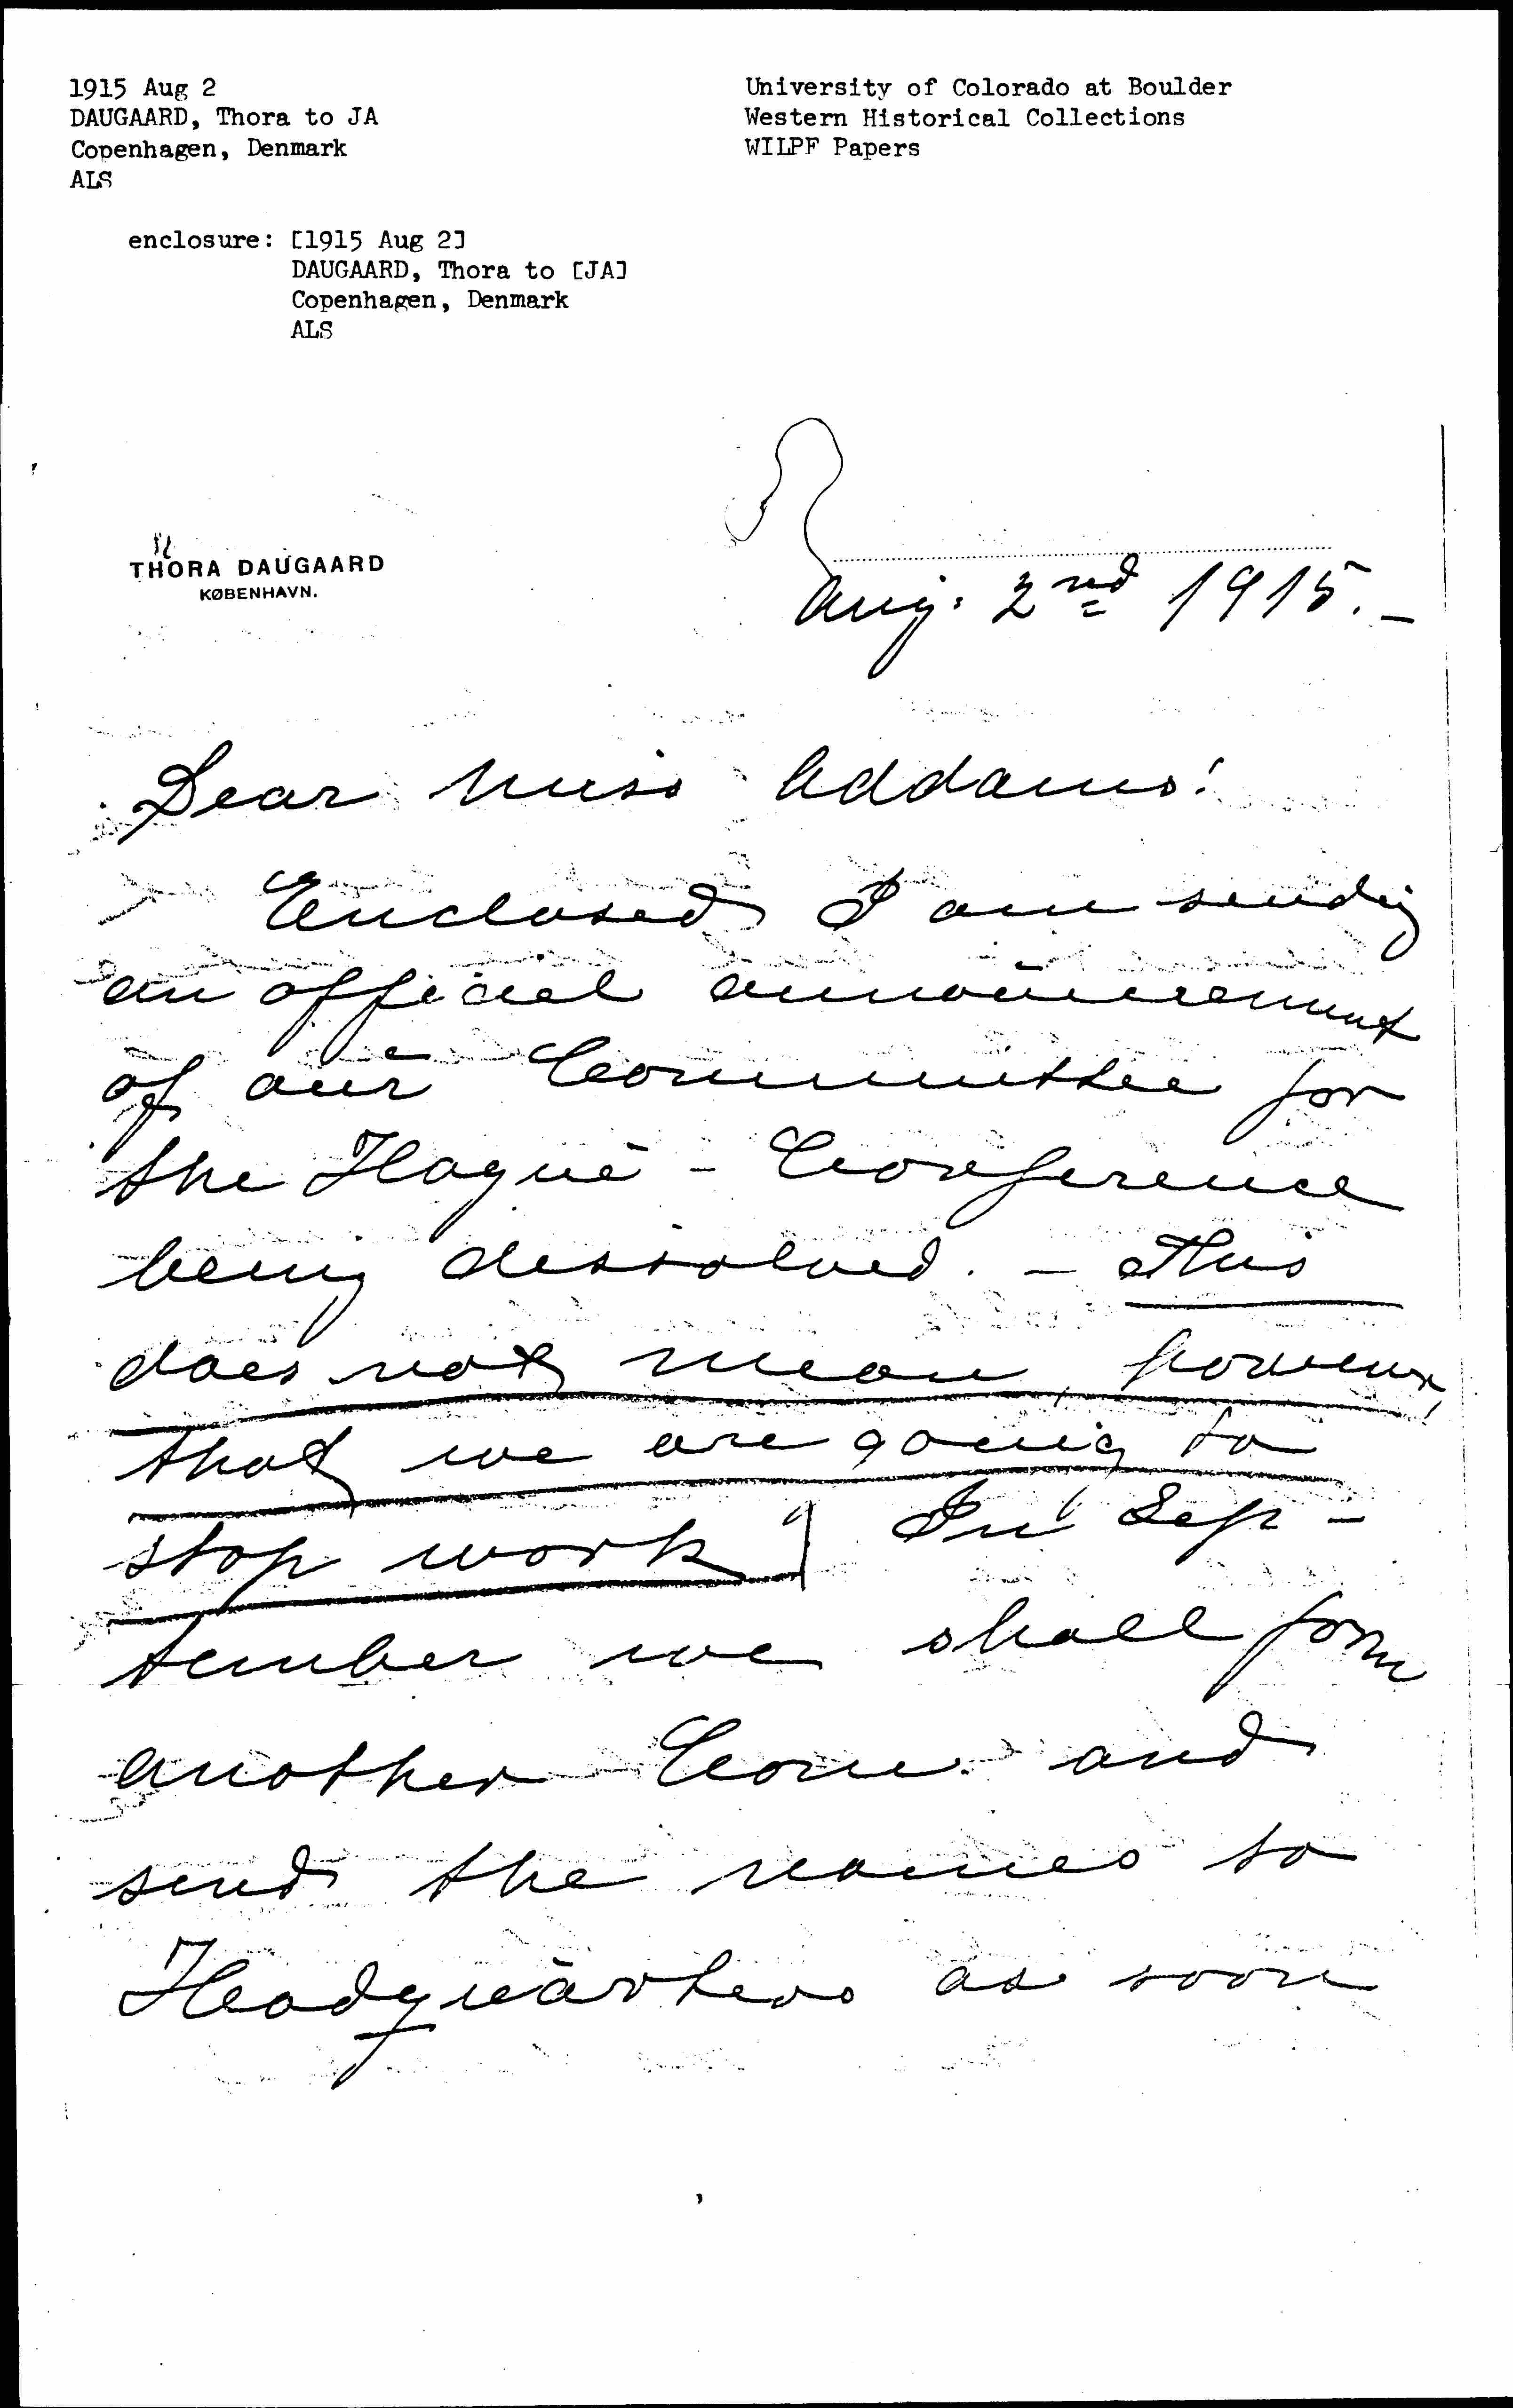 1915 Aug 2
DAUGAARD, Thora to JA
Copenhagen, Denmark
ALS
University of Colorado at Boulder
Western Historical Collections
WILPF Papers
enclosure: [1915 Aug 2]
DAUGAARD, Thora to [JA]
Copenhagen, Denmark
ALS
THORA DAUGAARD
KØBENHAVN.
Aug. 2nd 1915.-
Dear Miss Addams!
Enclosed I am sending
an official announcement
of our Committee for
the Hague - Conference
being dissolved. - This
does not mean, however,
that we are going to
stop work! In Sep-
tember we shall form
another Com. and
send the names to
Headquarters as soon